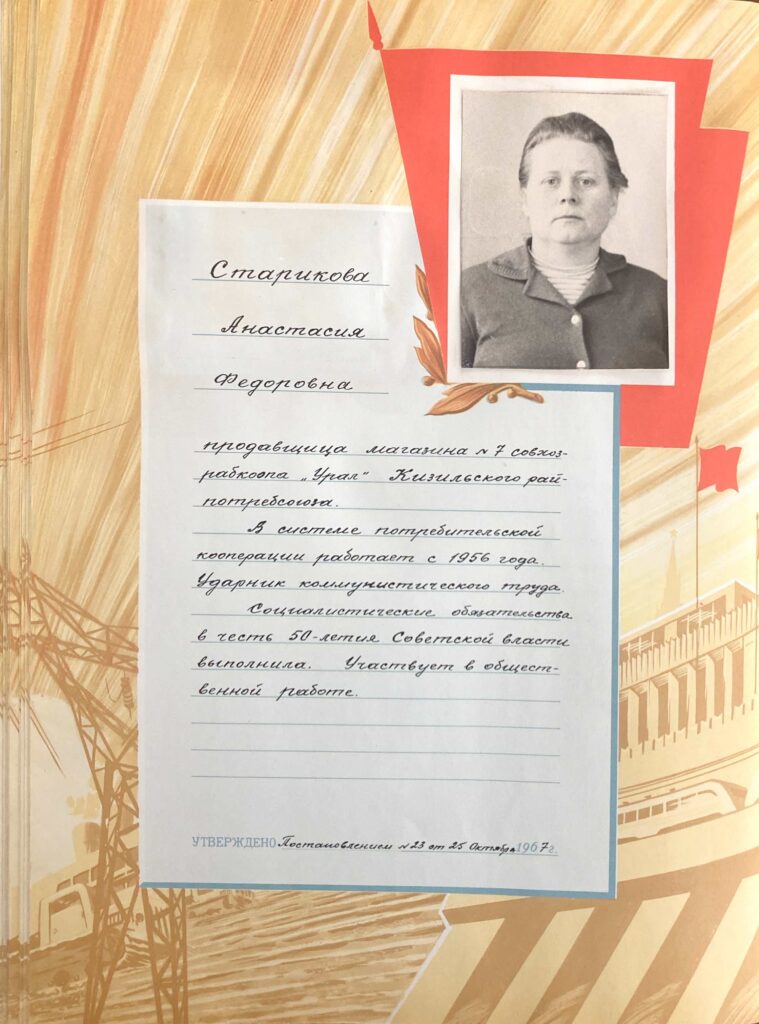 Старикова
Анастасия
Федоровна
продавщица магазина №7 совхоз-
рабкоопа „Урал" Кизильского рай-
потребсоюза.
В системе потребительской
кооперации работает с 1956 года.
Ударник коммунистического труда.
Социалистические обязательства
в честь 50-летия Советской власти
выполнила. Участвует в общест-
венной работе.
УТВЕРЖДЕНО Постановлением №23 от 25 Октября 1967 г.